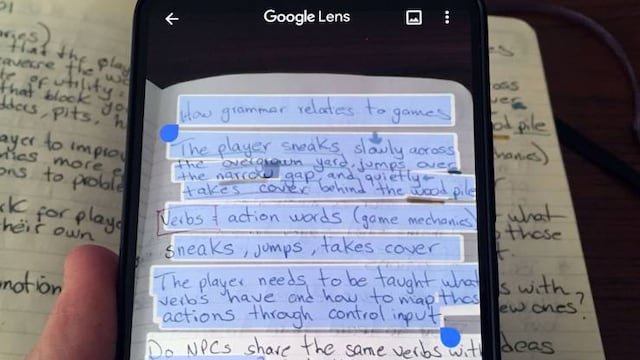 Google Lens
How grammar relates to games
The player sneaks slowly across
the overgrown yard, jumps over
the narrow gap and quietly
takes cover behind the wood pile
Verbs & action words (game mechanics)
sneaks, jumps, takes cover
The player needs to be taught what
verbs have and how to map thos
actions through control input
Do NPCs share the same verbs with
that the play
traverse the
or utility.
that block yo
pits, h
ayer to improv
more e
to proble
for playe
their own
notion
oss
od pile
hanics)
what
those
s with
ew ones?
deas